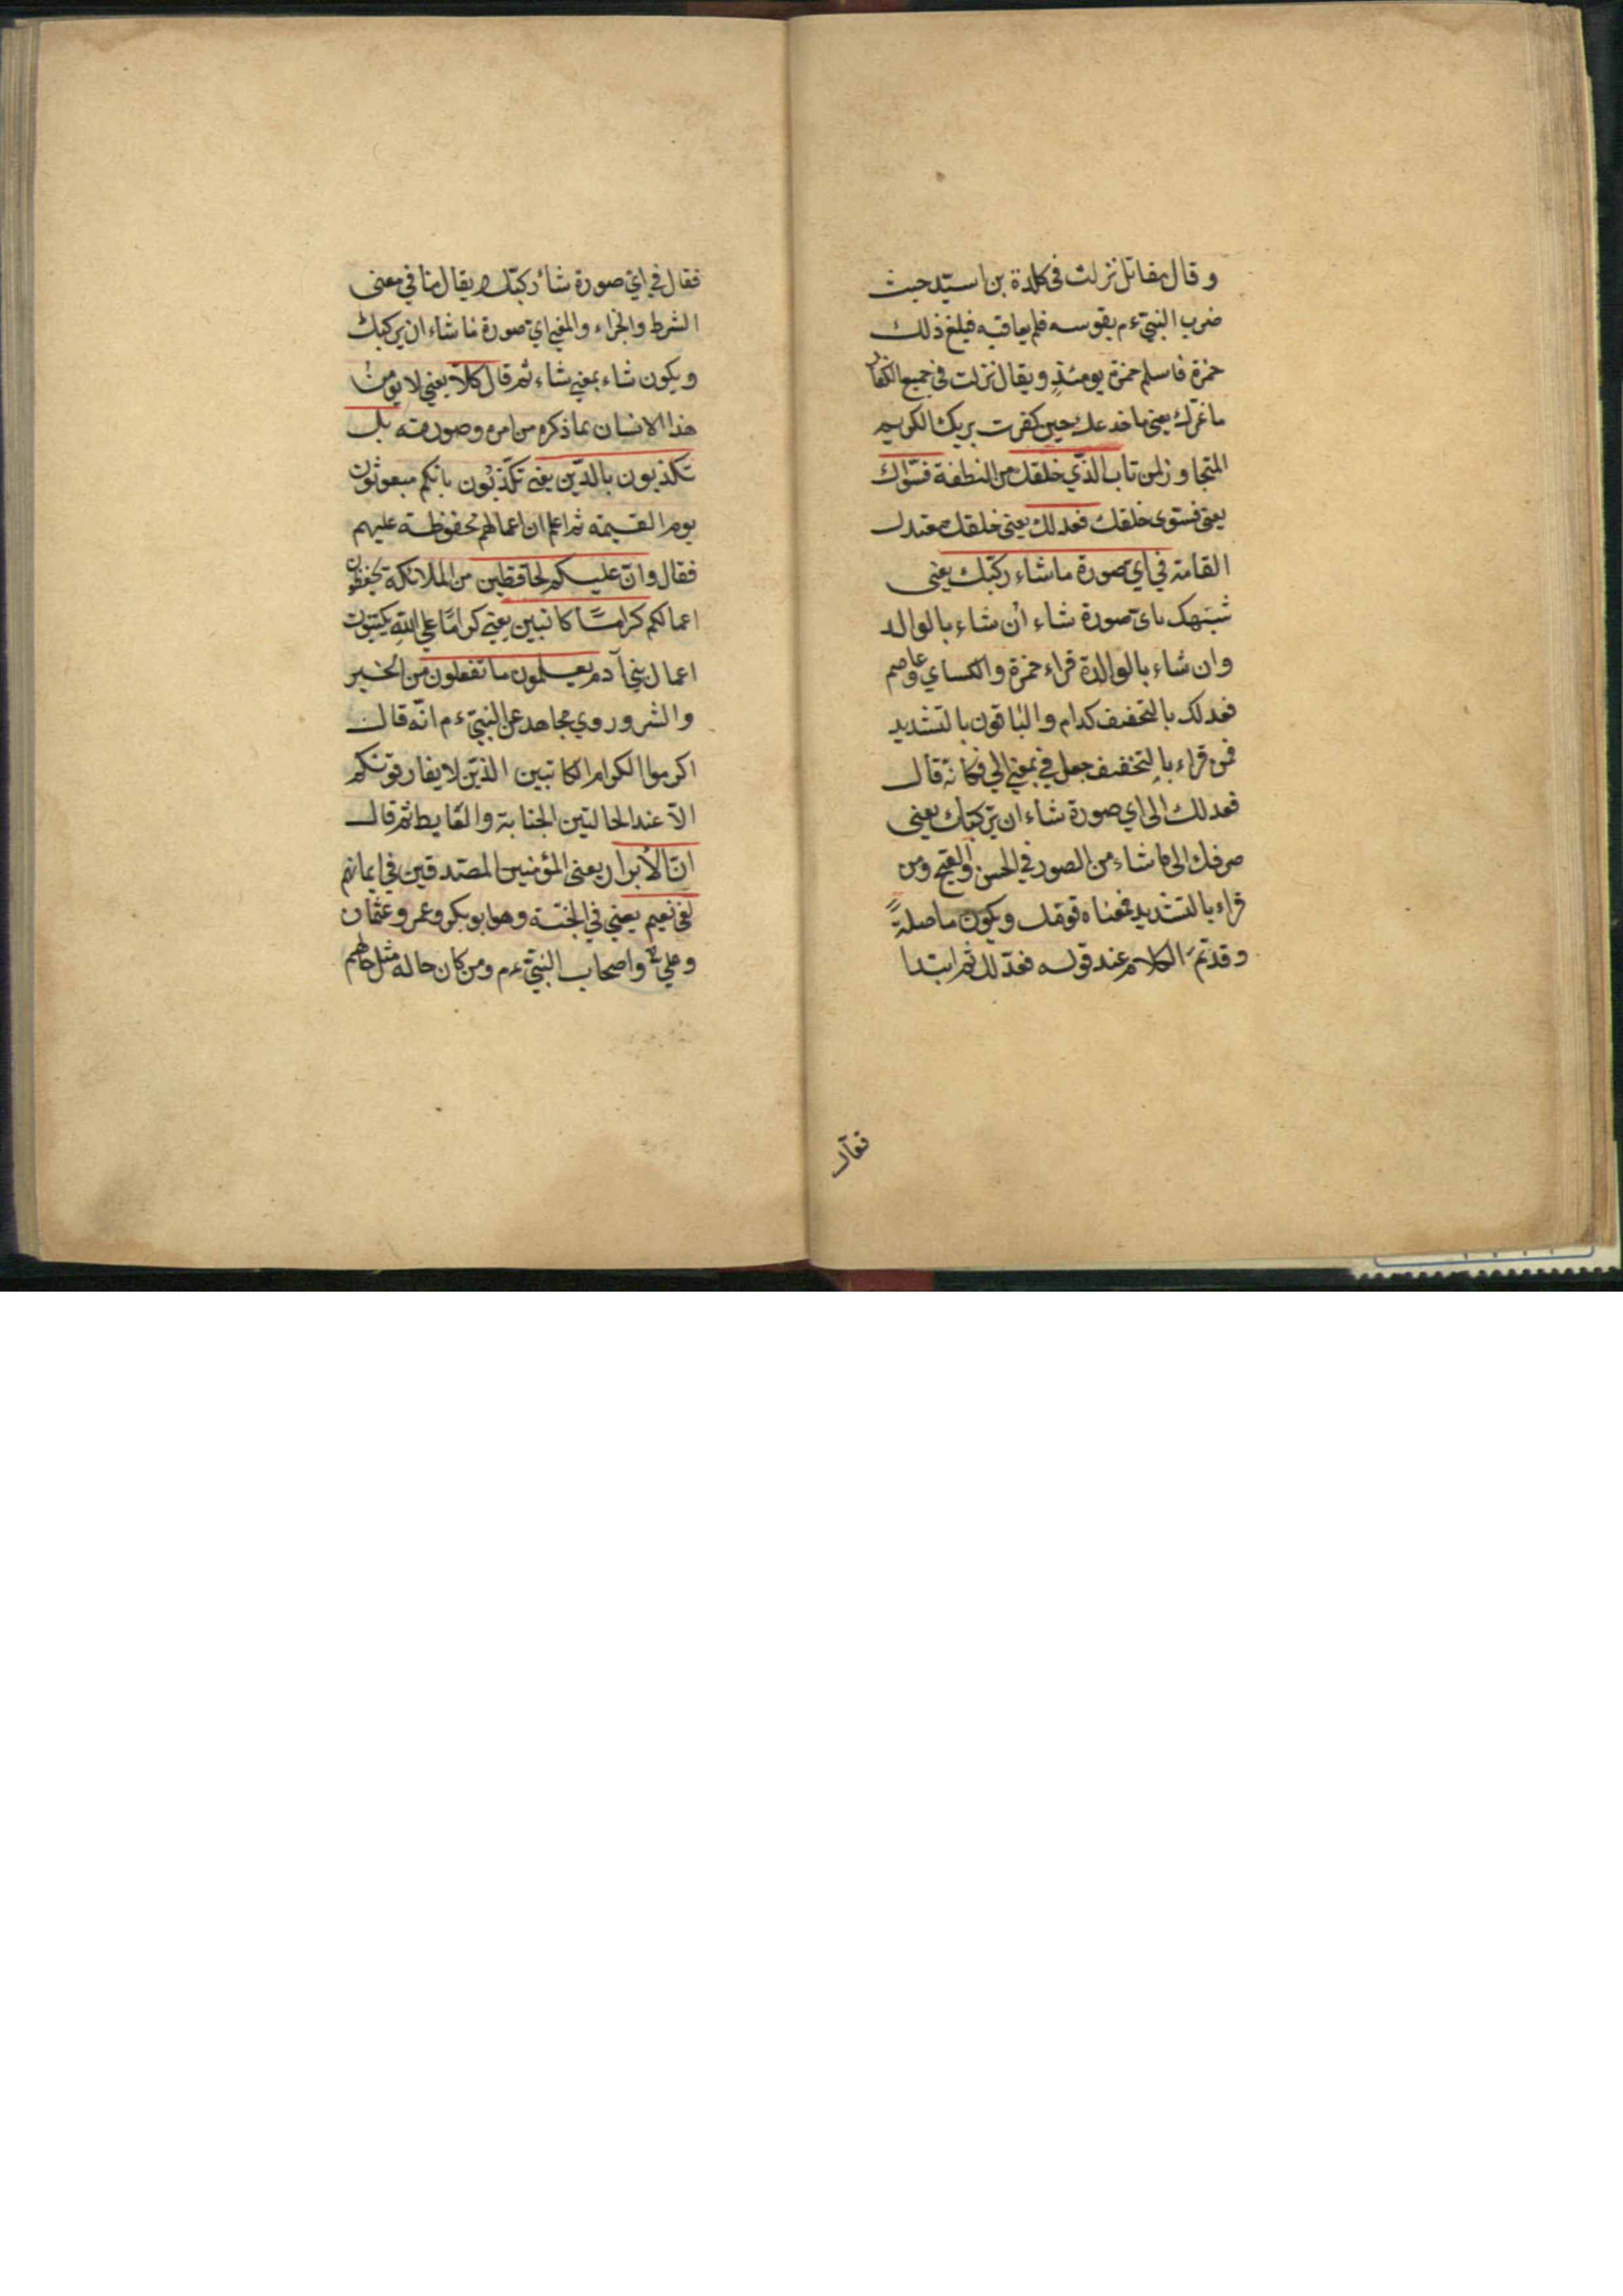 وقال مقاتل نزلت فى كلدة بن اسيّد حيث
ضرب النبىّ ءم بقوسه فلم يعاقبه فبلغ ذلك
حمزة فاسلم حمزة يومئذٍ ويقال نزلت فى جميع الكفار
ما غرّك يعنى ما خدعك حين كفرت بربك الكريم
المتجاوز لمن تاب الذّي خلقك من النطفة فسوّاك
يعنى فسوى خلقك فعدلك يعنى خلقك معتدل
القامة في اىّ صورة ما شاء ركبّك يعنى
شبّهك باىّ صورة شاء ان شاء بالوالد
وان شاء بالوالدة قراء حمزة والكساي وعاصم
فعدلك بالتخفيف كدام والباقون بالتشديد
فمن قراء بالتخفيف جعل في بمعنى الي فكانّه قال
فعدلك الى اي صورة شاء ان يركبّك يعنى
صرفك الى ما شاء من الصور في الحسن والقبح ومن
قراء بالتشديد فمعناه قومك ويكون ما صلةً
وقد تمّ الكلام عند قوله فعدّلك ثم ابتدا
فقال
فقال في ايّ صورة شاء ركبّك ويقال ما في معنى
الشرط والجزاء والمعنى اي صورة ما شاء ان يركبك
ويكون شاء بمعنى شاء ثم قال كلاّ يعني لا يؤمن
هذا الانسان بما ذكره من امره وصورته بل
تكذبون بالدّين يعنى تكذّبون بانكم مبعوثون
يوم القيمة ثم اعلم ان اعمالهم محفوظة عليهم
فقال وانّ عليكم لحافظين من الملائكة يحفظون
اعمالكم كرامًا كاتبين يعني كرامًا على اللّه يكتبون
اعمال بني آدم يعلمون ما تفعلون من الخير
والشر وروي مجاهد عن النبيّ ءم انّه قال
اكرموا الكرام الكاتبين الذّين لا يفارقونكم
الاّ عند الحالتين الجنابة والغايط ثم قال
انّ الابرار يعنى المؤمنين المصدقين في ايمانهم
لفي نعيم يعني في الجنّة وهو ابو بكر وعمر وعثمان
وعلي واصحاب النبيّ ءم ومن كان حاله مثل حالهم